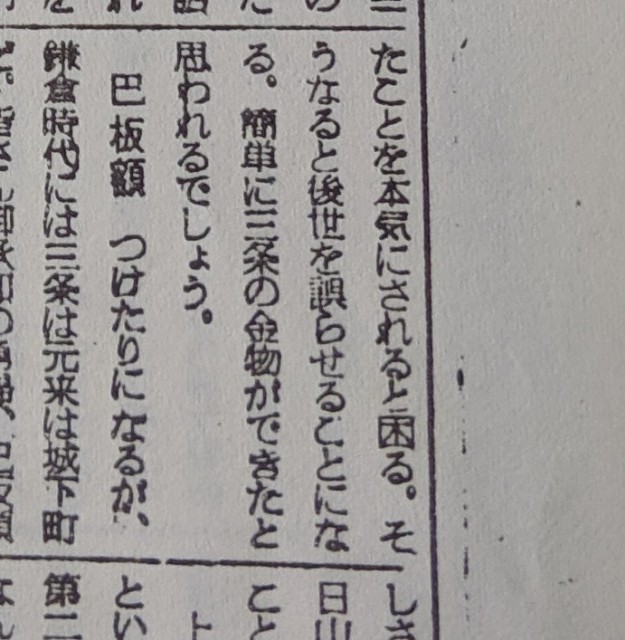 たことを本気にされると困る。そ
うなると後世を誤らせることにな
る。簡単に三条の金物ができたと
思われるでしょう。
巴板額 つけたりになるが、
鎌倉時代には三条は元来は城下町
しさ
日山
こと
よ
とい
第二